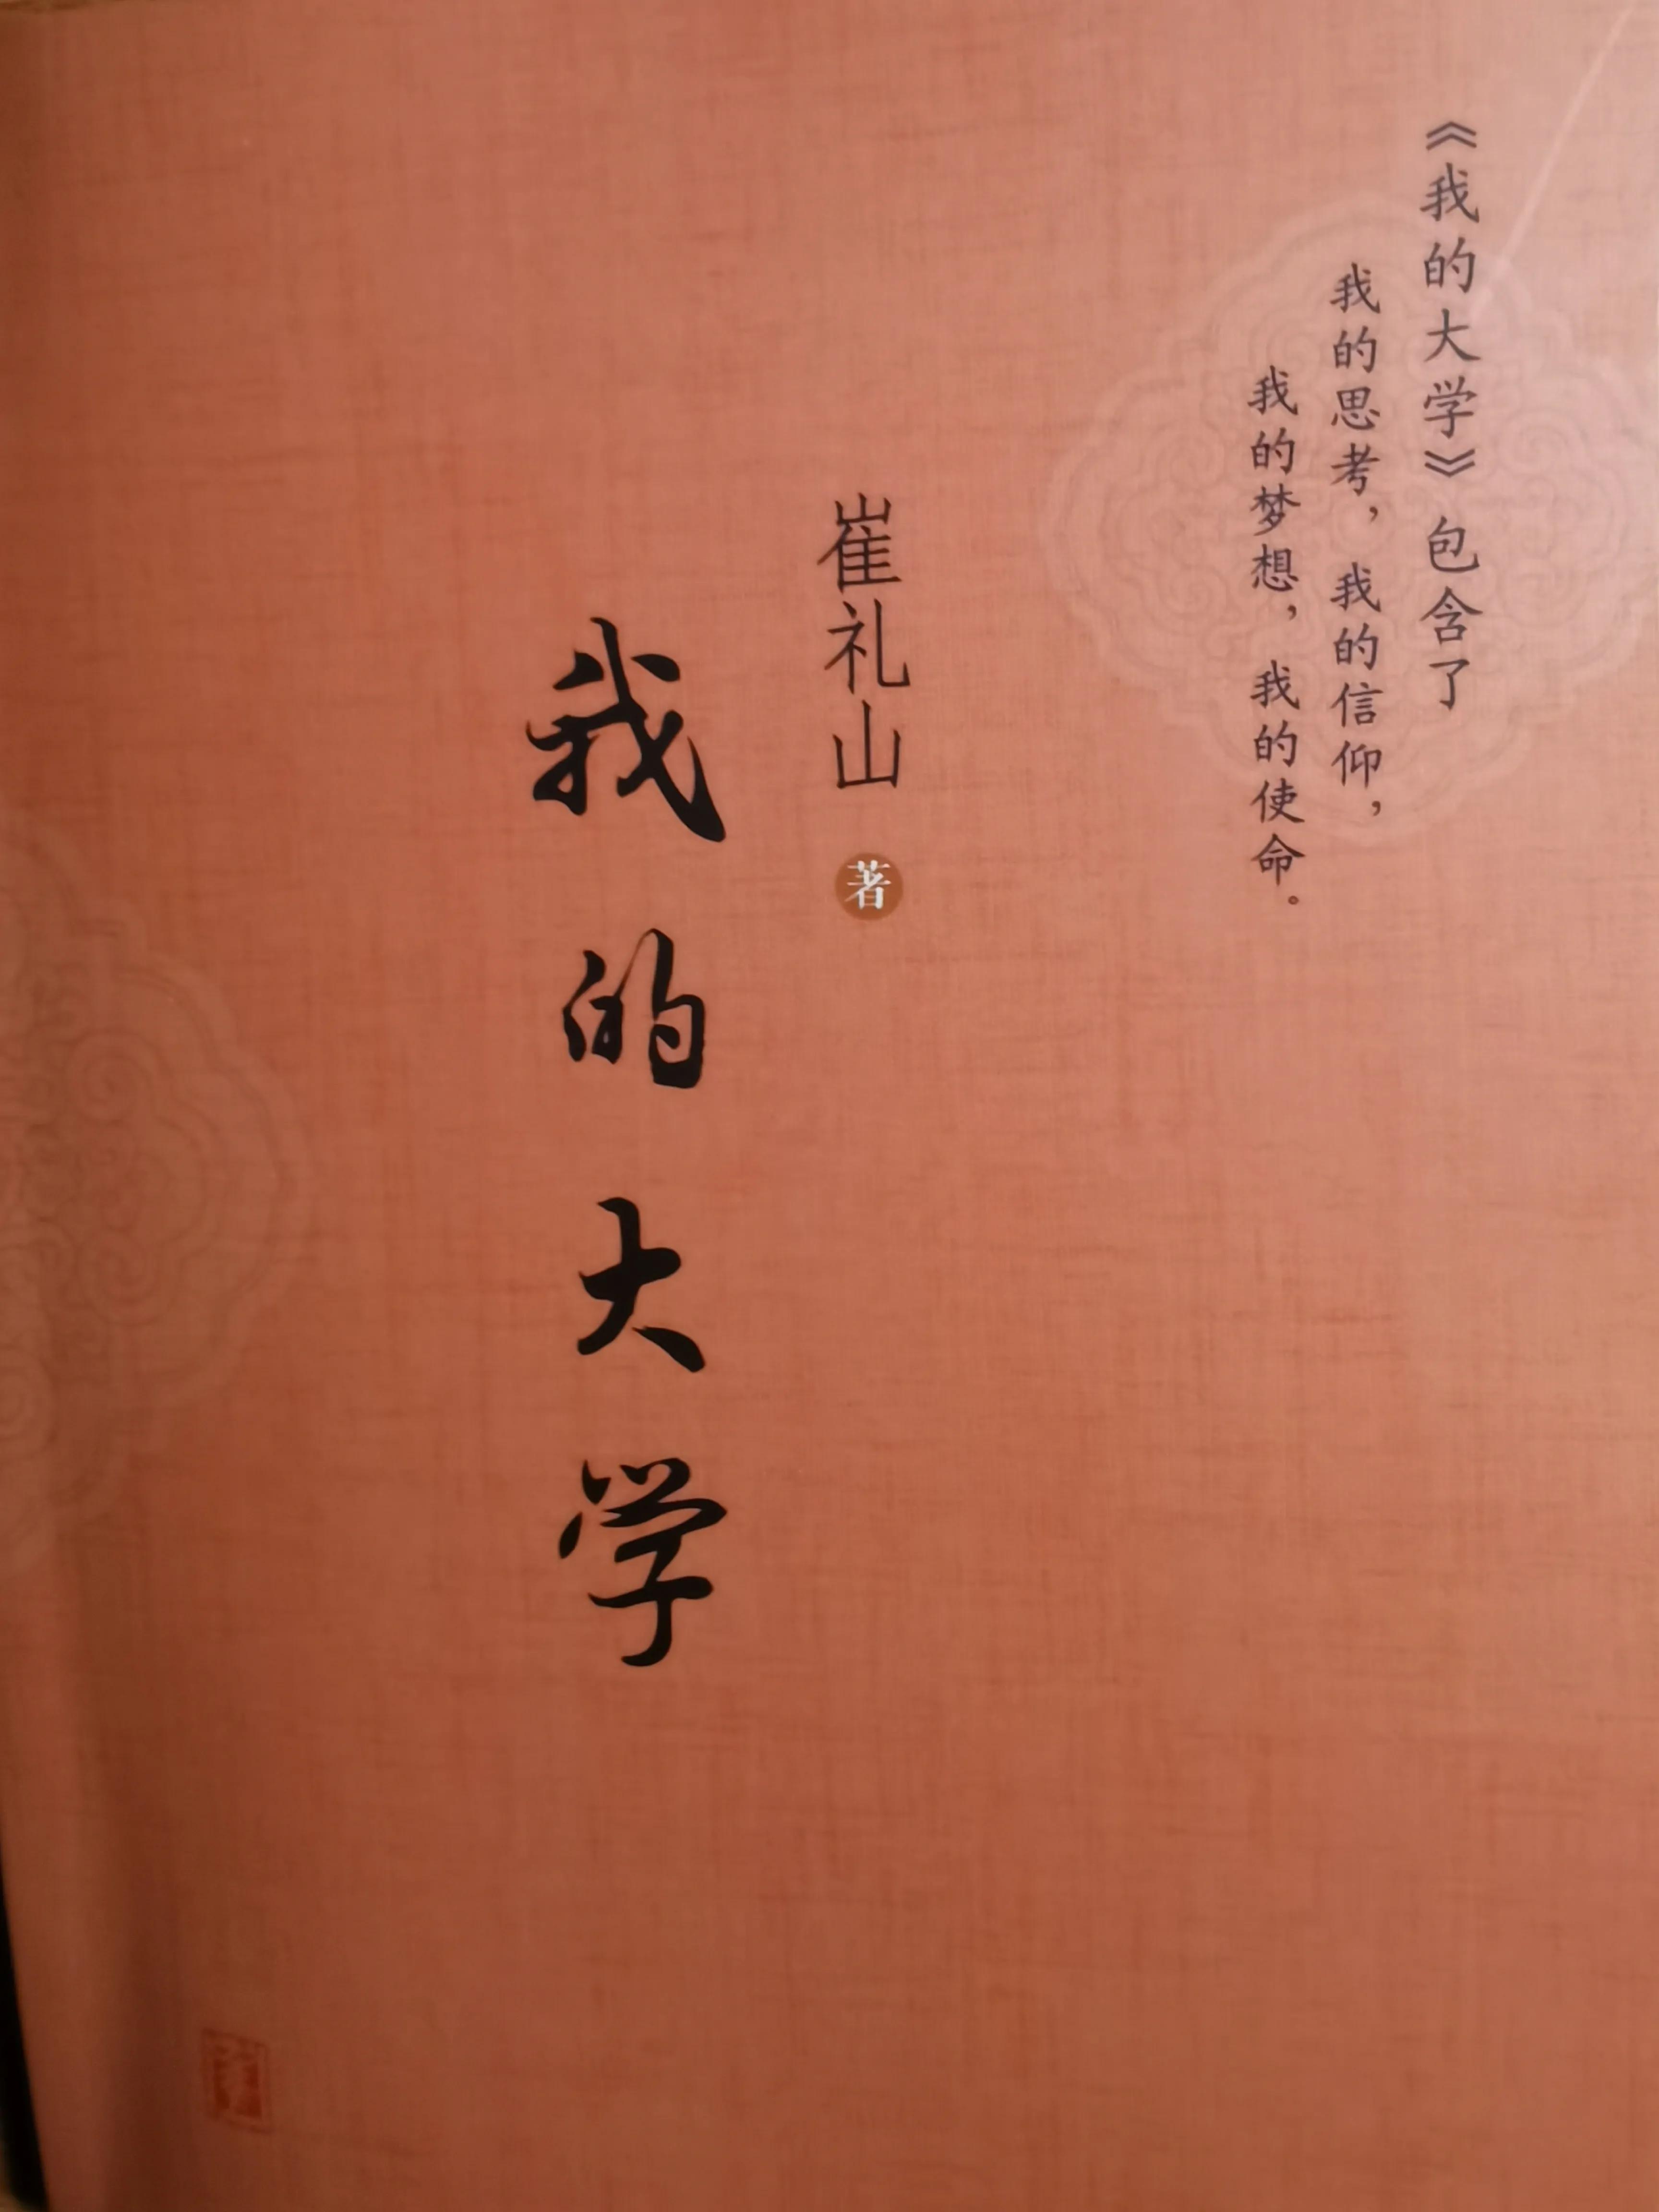 《我的大学》包含了
我的思考，我的信仰，
我的梦想，我的使命。
崔礼山 著
我的大学